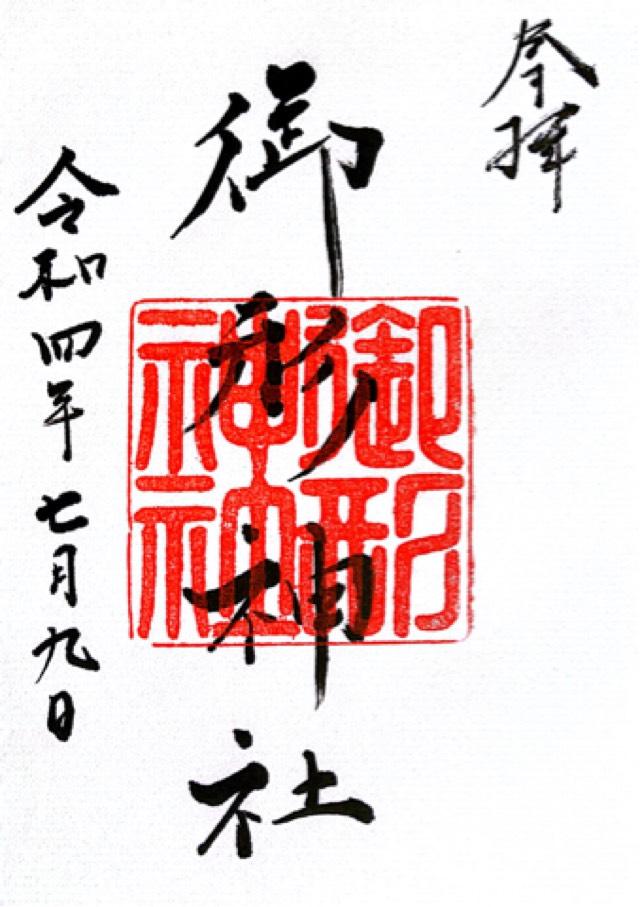 奉拝
御形神社
御形
神社
令和四年七月九日